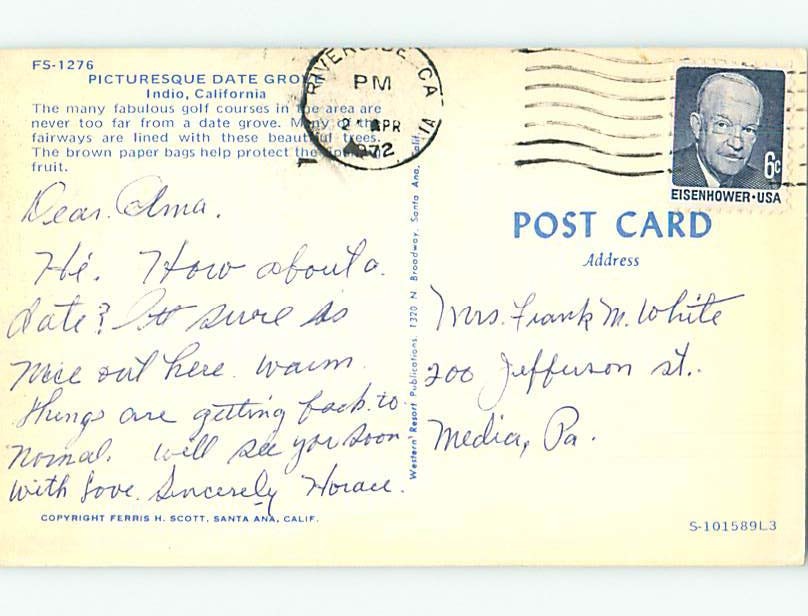 FS-1276
PICTURESQUE DATE GROVE
Indio, California
The many fabulous golf courses in the area are
never too far from a date grove. Many of the
fairways are lined with these beautiful trees.
The brown paper bags help protect the
fruit.
Dear Alma.
Hi. How about a
date? It sure is
nice out here. warm.
things are getting back to
normal. will see you soon
with love. Sincerely Horace.
COPYRIGHT FERRIS H. SCOTT, SANTA ANA, CALIF.
Western Resort Publications, 1320 N. Broadway, Santa Ana, Calif.
RIVERSIDE CA
PM
APR
1972
6c
EISENHOWER·USA
POST CARD
Address
Mrs. Frank M. White
200 Jefferson st.
Media, Pa.
S-101589L3